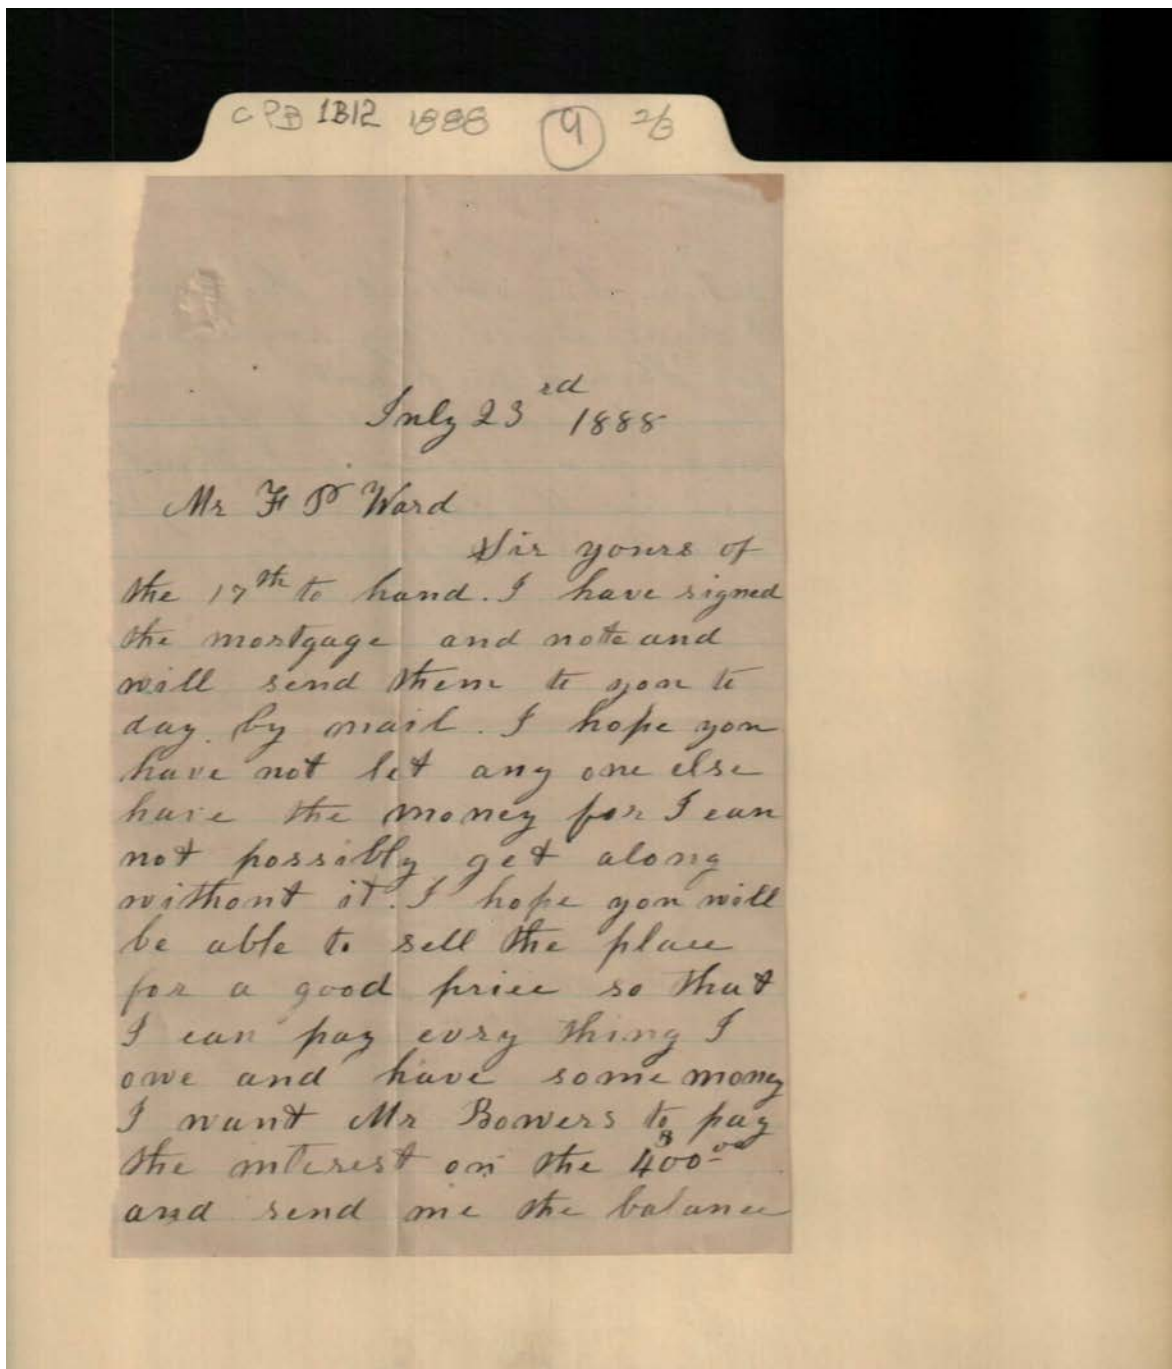 CPB 1B12 1888 9 2/3
July 23rd 1888
Mr F P Ward
Sir yours of
the 17th to hand. I have signed
the mortgage and note and
will send them to you to
day. by mail. I hope you
have not let any one else
have the money for I can
not possibly get along
without it. I hope you will
be able to sell the place
for a good price so that
I can pay evry thing I
owe and have some money
I want Mr Bowers to pay
the interest on the 400.00
and send me the balance